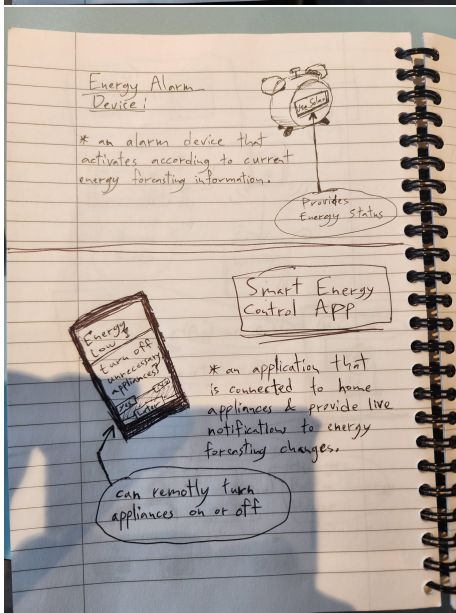 Energy Alarm
Device:
* an alarm device that
activates according to current
energy forcasting information.
Provides
Energy Status
Smart Energy
Control App
Energy
Low
turn off
unnecessary
appliances?
* an application that
is connected to home
appliances & provide live
notifications to energy
forcasting changes.
can remotly turn
appliances on or off